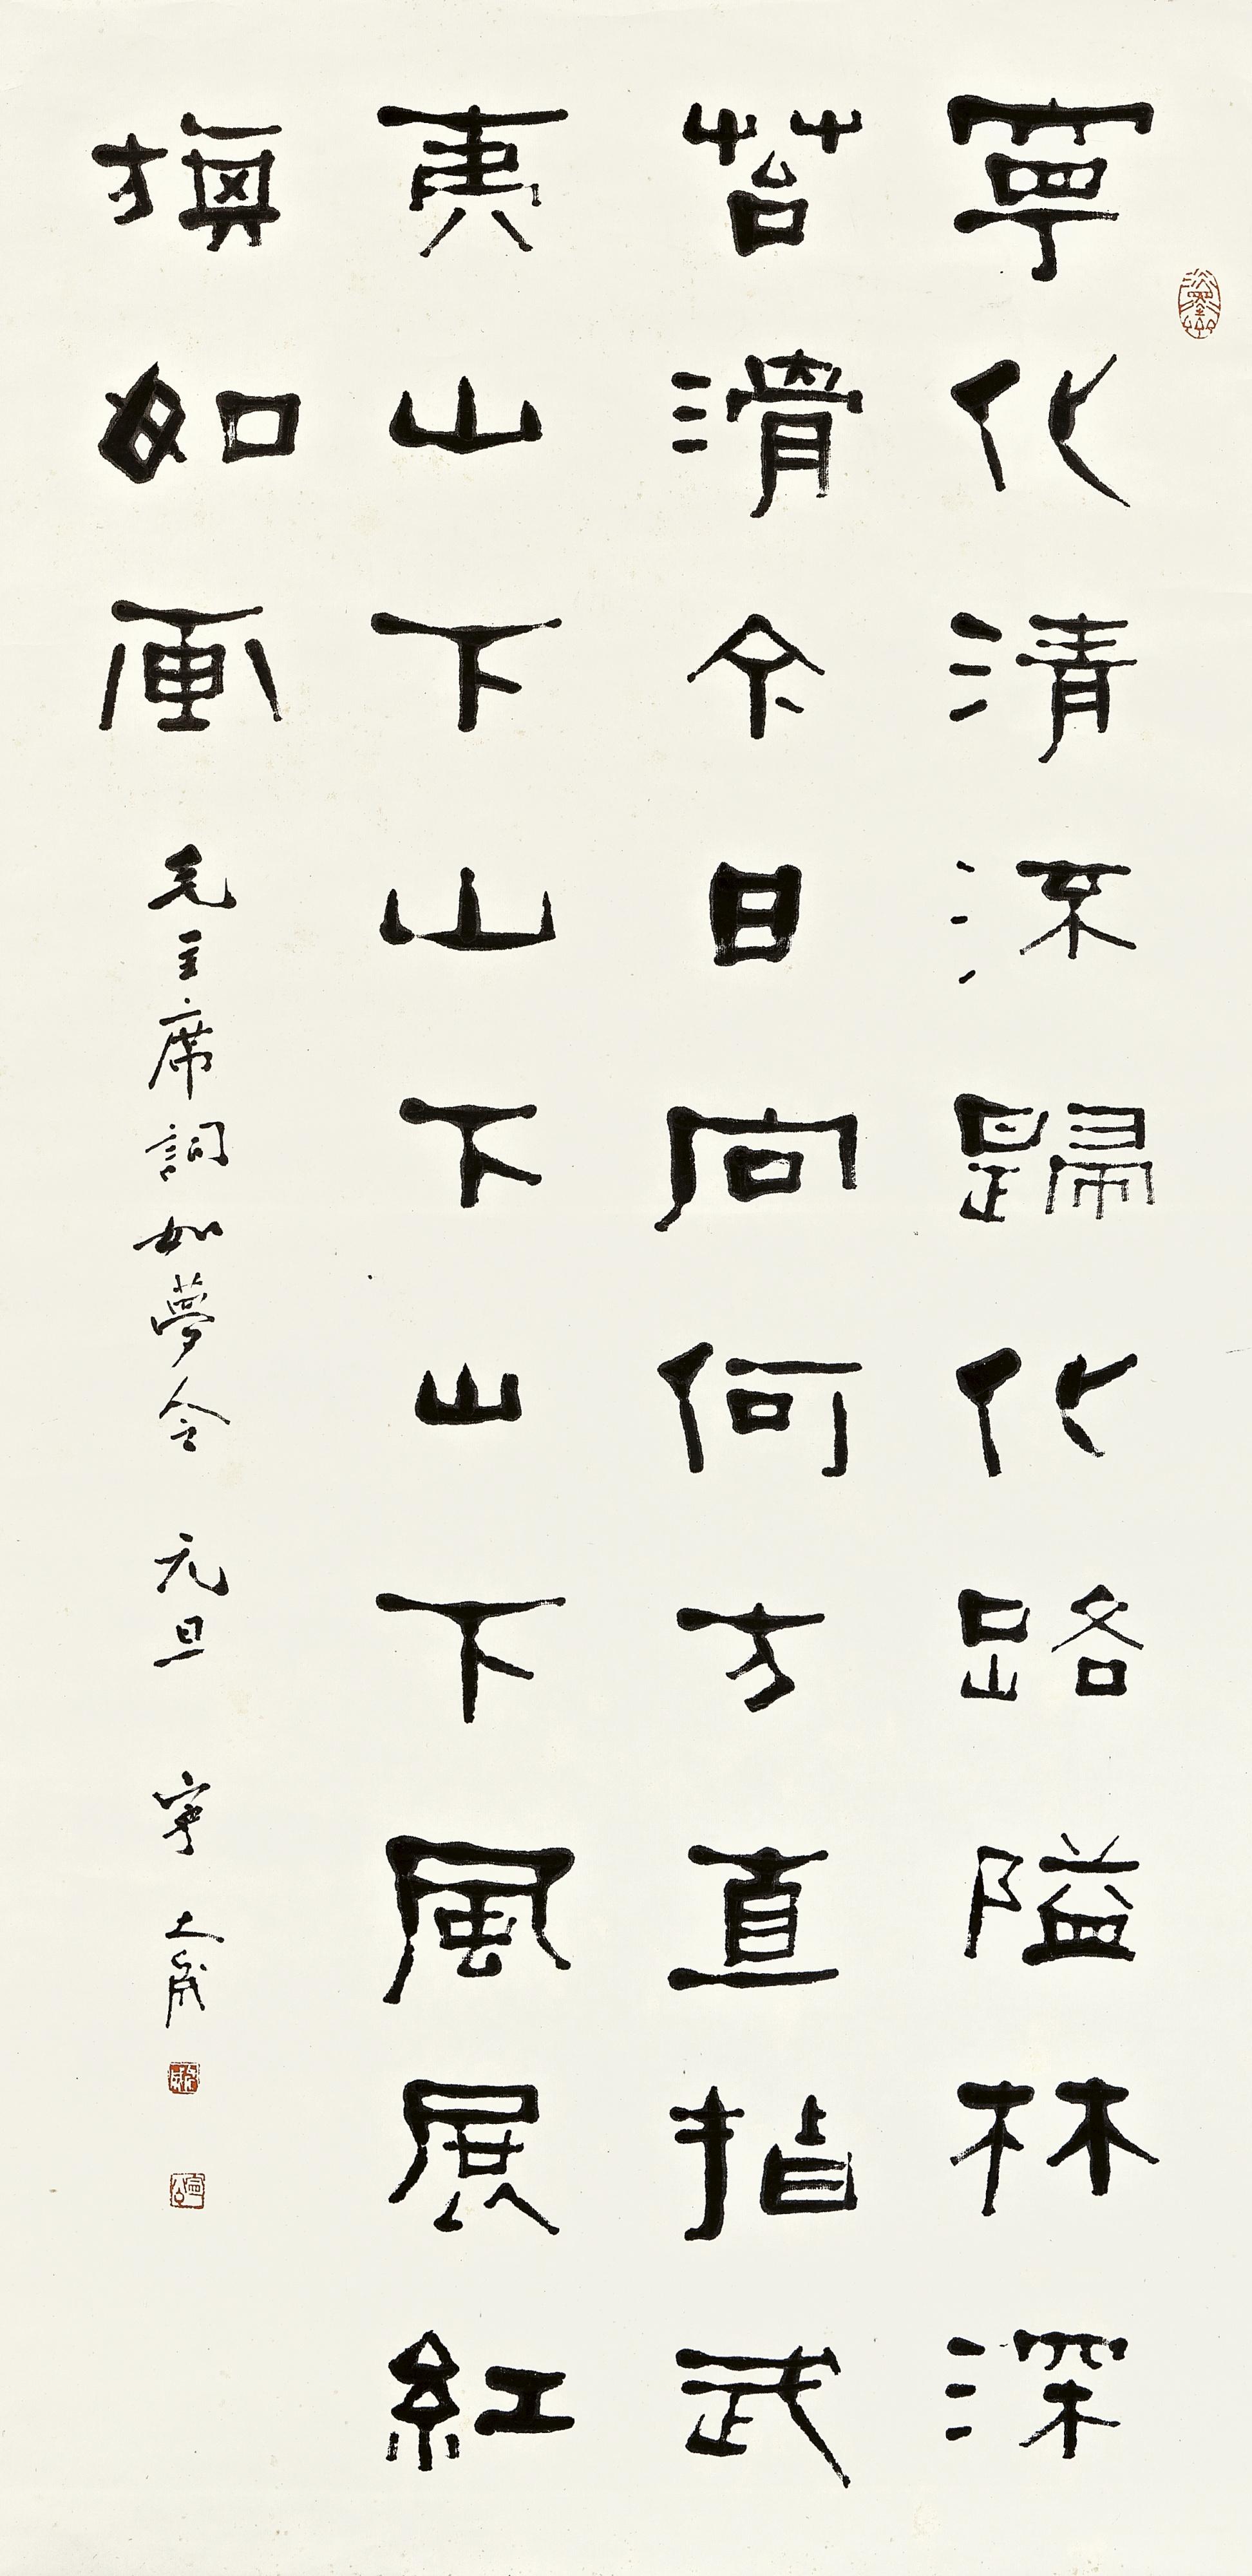 寧化清流歸化路隘林深
苔滑今日向何方直指武
夷山下山下山下風展紅
旗如画 毛主席詞如夢令 元旦 寧斧成